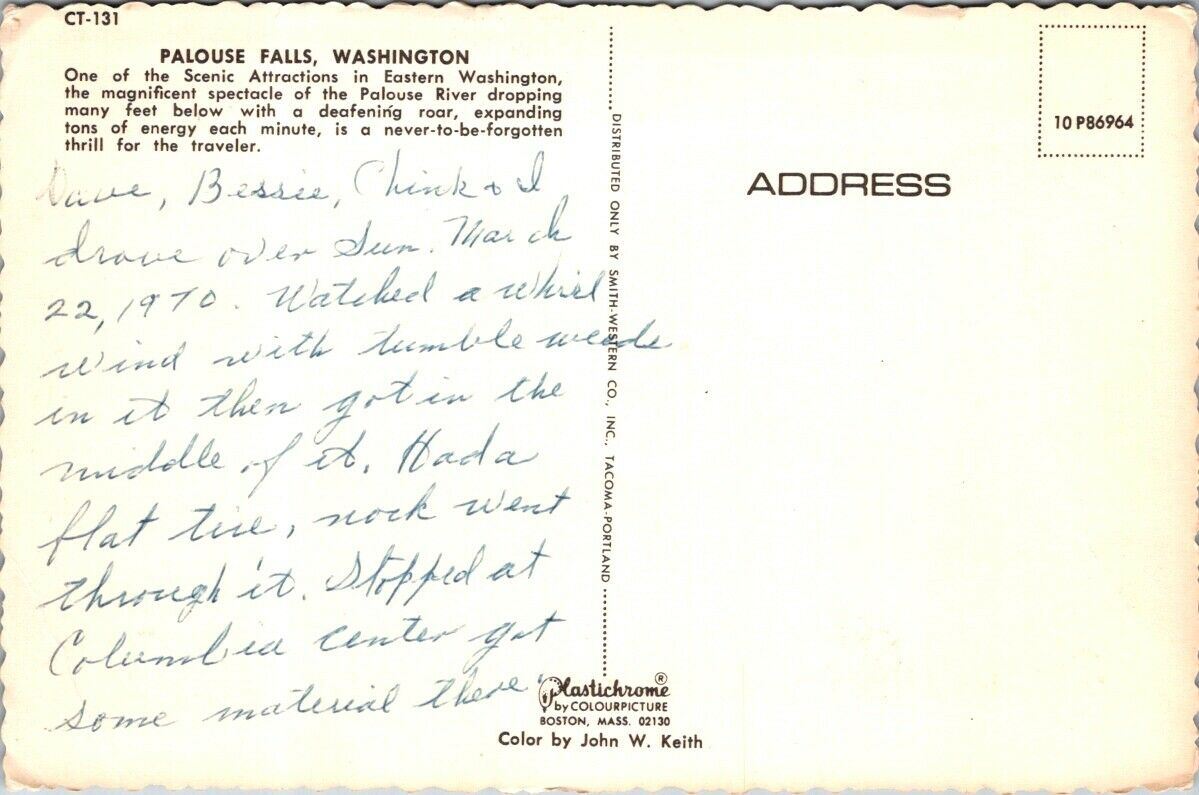 CT-131
PALOUSE FALLS, WASHINGTON
One of the Scenic Attractions in Eastern Washington,
the magnificent spectacle of the Palouse River dropping
many feet below with a deafening roar, expanding
tons of energy each minute, is a never-to-be-forgotten
thrill for the traveler.
Dave, Bessie, Chink & I
drove over Sun. March
22, 1970. Watched a whirl
wind with tumble weeds
in it then got in the
middle of it. Had a
flat tire, rock went
through it. Stopped at
Columbia center got
some material there.
DISTRIBUTED ONLY BY SMITH-WESTERN CO., INC., TACOMA-PORTLAND
Plastichrome®
by COLOURPICTURE
BOSTON, MASS. 02130
Color by John W. Keith
10 P86964
ADDRESS